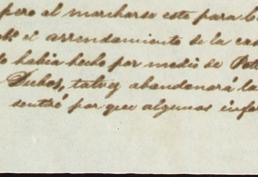 pero al marcharse este para l
el arrendamiento de la cas
había hecho por medio de
Dubos, talvez abandonará la
por que algunas infor